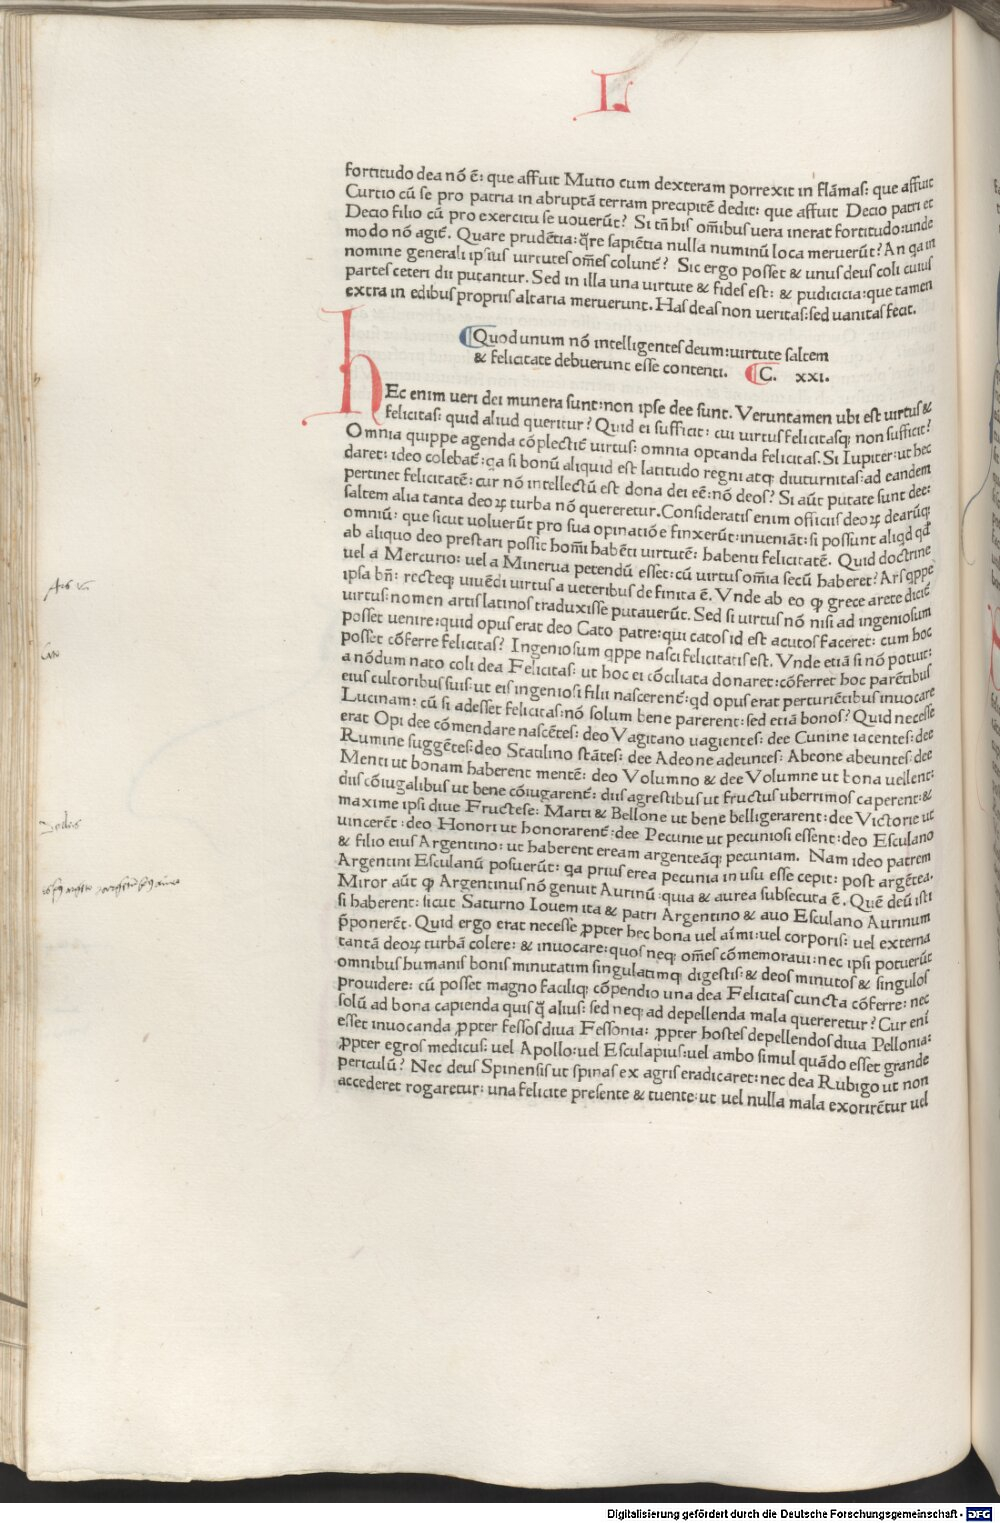 L
fortitudo dea nō ē: que affuit Mutio cum dexteram porrexit in flāmas: que affuit
Curtio cū se pro patria in abruptā terram precipitē dedit: que affuit Decio patri et
Decio filio cū pro exercitu se uouerūt? Si tñ his oībus uera inerat fortitudo: unde
modo nō agit̄. Quare prudētia: q̄re sapiētia nulla numinū loca meruerūt? An qa in
nomine generali ipsius uirtutes oēs colunt̄? Sic ergo posset & unus deus coli cuius
partes ceteri dii putantur. Sed in illa una uirtute & fides est: & pudicicia: que tamen
extra in edibus propriis altaria meruerunt. Has deas non ueritas: sed uanitas fecit.
Quod unum nō intelligentes deum: uirtute saltem
& felicitate debuerunt esse contenti. C. xxi.
hEc enim ueri dei munera sunt: non ipse dee sunt. Veruntamen ubi est uirtus &
felicitas: quid aliud queritur? Quid ei sufficit: cui uirtus felicitasq; non sufficit?
Omnia quippe agenda cōplectit̄ uirtus: omnia optanda felicitas. Si Iupiter: ut hec
daret: ideo colebat̄: qa si bonū aliquid est latitudo regni atq; diuturnitas: ad eandem
pertinet felicitatē: cur nō intellectū est dona dei eē: nō deos? Si aūt putate sunt dee:
saltem alia tanta deoꝝ turba nō quereretur. Consideratis enim officiis deoꝝ dearūq;
omniū: que sicut uoluerūt pro sua opinatiōe finxerūt: inueniāt: si possunt aliqd qd
ab aliquo deo prestari possit homī habēti uirtutē: habenti felicitatē. Quid doctrine
uel a Mercurio: uel a Minerua petendū esset: cū uirtus oīa secū haberet? Ars qppe
ipsa bn̄: recteq; uiuēdi uirtus a ueteribus definita ē. Vnde ab eo ꝙ grece arete dicit̄
uirtus: nomen artis latinos traduxisse putauerūt. Sed si uirtus nō nisi ad ingeniosum
posset uenire: quid opus erat deo Cato patre: qui catos id est acutos faceret: cum hoc
posset cōferre felicitas? Ingeniosum qppe nasci felicitatis est. Vnde etiā si nō potuit:
a nōdum nato coli dea Felicitas: ut hoc ei cōciliata donaret: cōferret hoc parētibus
eius cultoribus suis: ut eis ingeniosi filii nascerent̄: qd opus erat perturiētibus inuocare
Lucinam: cū si adesset felicitas: nō solum bene parerent: sed etiā bonos? Quid necesse
erat Opi dee cōmendare nascētes: deo Vagitano uagientes: dee Cunine iacentes: dee
Rumine suggētes: deo Statilino stātes: dee Adeone adeuntes: Abeone abeuntes: dee
Menti ut bonam haberent mentē: deo Volumno & dee Volumne ut bona uellent:
diis cōiugalibus ut bene cōiugarent̄: diis agrestibus ut fructus uberrimos caperent: &
maxime ipsi diue Fructese: Marti & Bellone ut bene belligerarent: dee Victorie ut
uincerēt: deo Honori ut honorarent̄: dee Pecunie ut pecuniosi essent: deo Esculano
& filio eius Argentino: ut haberent eream argenteāq; pecuniam. Nam ideo patrem
Argentini Esculanū posuerūt: qa prius erea pecunia in usu esse cepit: post argētea.
Miror aūt ꝙ Argentinus nō genuit Aurinū: quia & aurea subsecuta ē. Quē deū isti
si haberent: sicut Saturno Iouem ita & patri Argentino & auo Esculano Aurinum
p̄ponerēt. Quid ergo erat necesse ꝓpter hec bona uel aīmi: uel corporis: uel externa
tantā deoꝝ turbā colere: & inuocare: quos neq; oēs cōmemoraui: nec ipsi potuerūt
omnibus humanis bonis minutatim singulatimq; digestis: & deos minutos & singulos
prouidere: cū posset magno faciliq; cōpendio una dea Felicitas cuncta cōferre: nec
solū ad bona capienda quis q̄ alius: sed neq; ad depellenda mala quereretur? Cur enī
esset inuocanda ꝓpter fessos diua Fessonia: ꝓpter hostes depellendos diua Pellonia:
ꝓpter egros medicus: uel Apollo: uel Esculapius: uel ambo simul quādo esset grande
periculū? Nec deus Spinensis ut spinas ex agris eradicaret: nec dea Rubigo ut non
accederet rogaretur: una felicite presente & tuente: ut uel nulla mala exorirētur uel
Digitalisierung gefördert durch die Deutsche Forschungsgemeinschaft - DFG